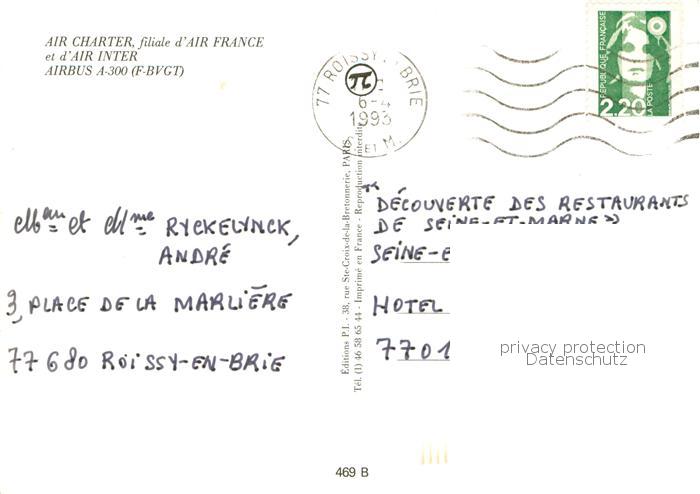 AIR CHARTER, filiale d'AIR FRANCE
et d'AIR INTER
AIRBUS A-300 (F-BVGT)
77 ROISSY BRIE
6-4
1993
ET M.
π
REPUBLIQUE FRANÇAISE
2,20
LA POSTE
Éditions P.I. - 38, rue Ste-Croix-de-la-Bretonnerie, PARIS
Tél. (1) 46 58 65 44 - Imprimé en France - Reproduction interdite
et Mme RYCKELYNCK,
ANDRÉ
3, PLACE DE LA MARLIÈRE
77680 ROISSY-EN-BRIE
DÉCOUVERTE DES RESTAURANTS
DE SEINE-ET-MARNE»
SEINE-E
HOTEL
7701
privacy protection
Datenschutz
469 B